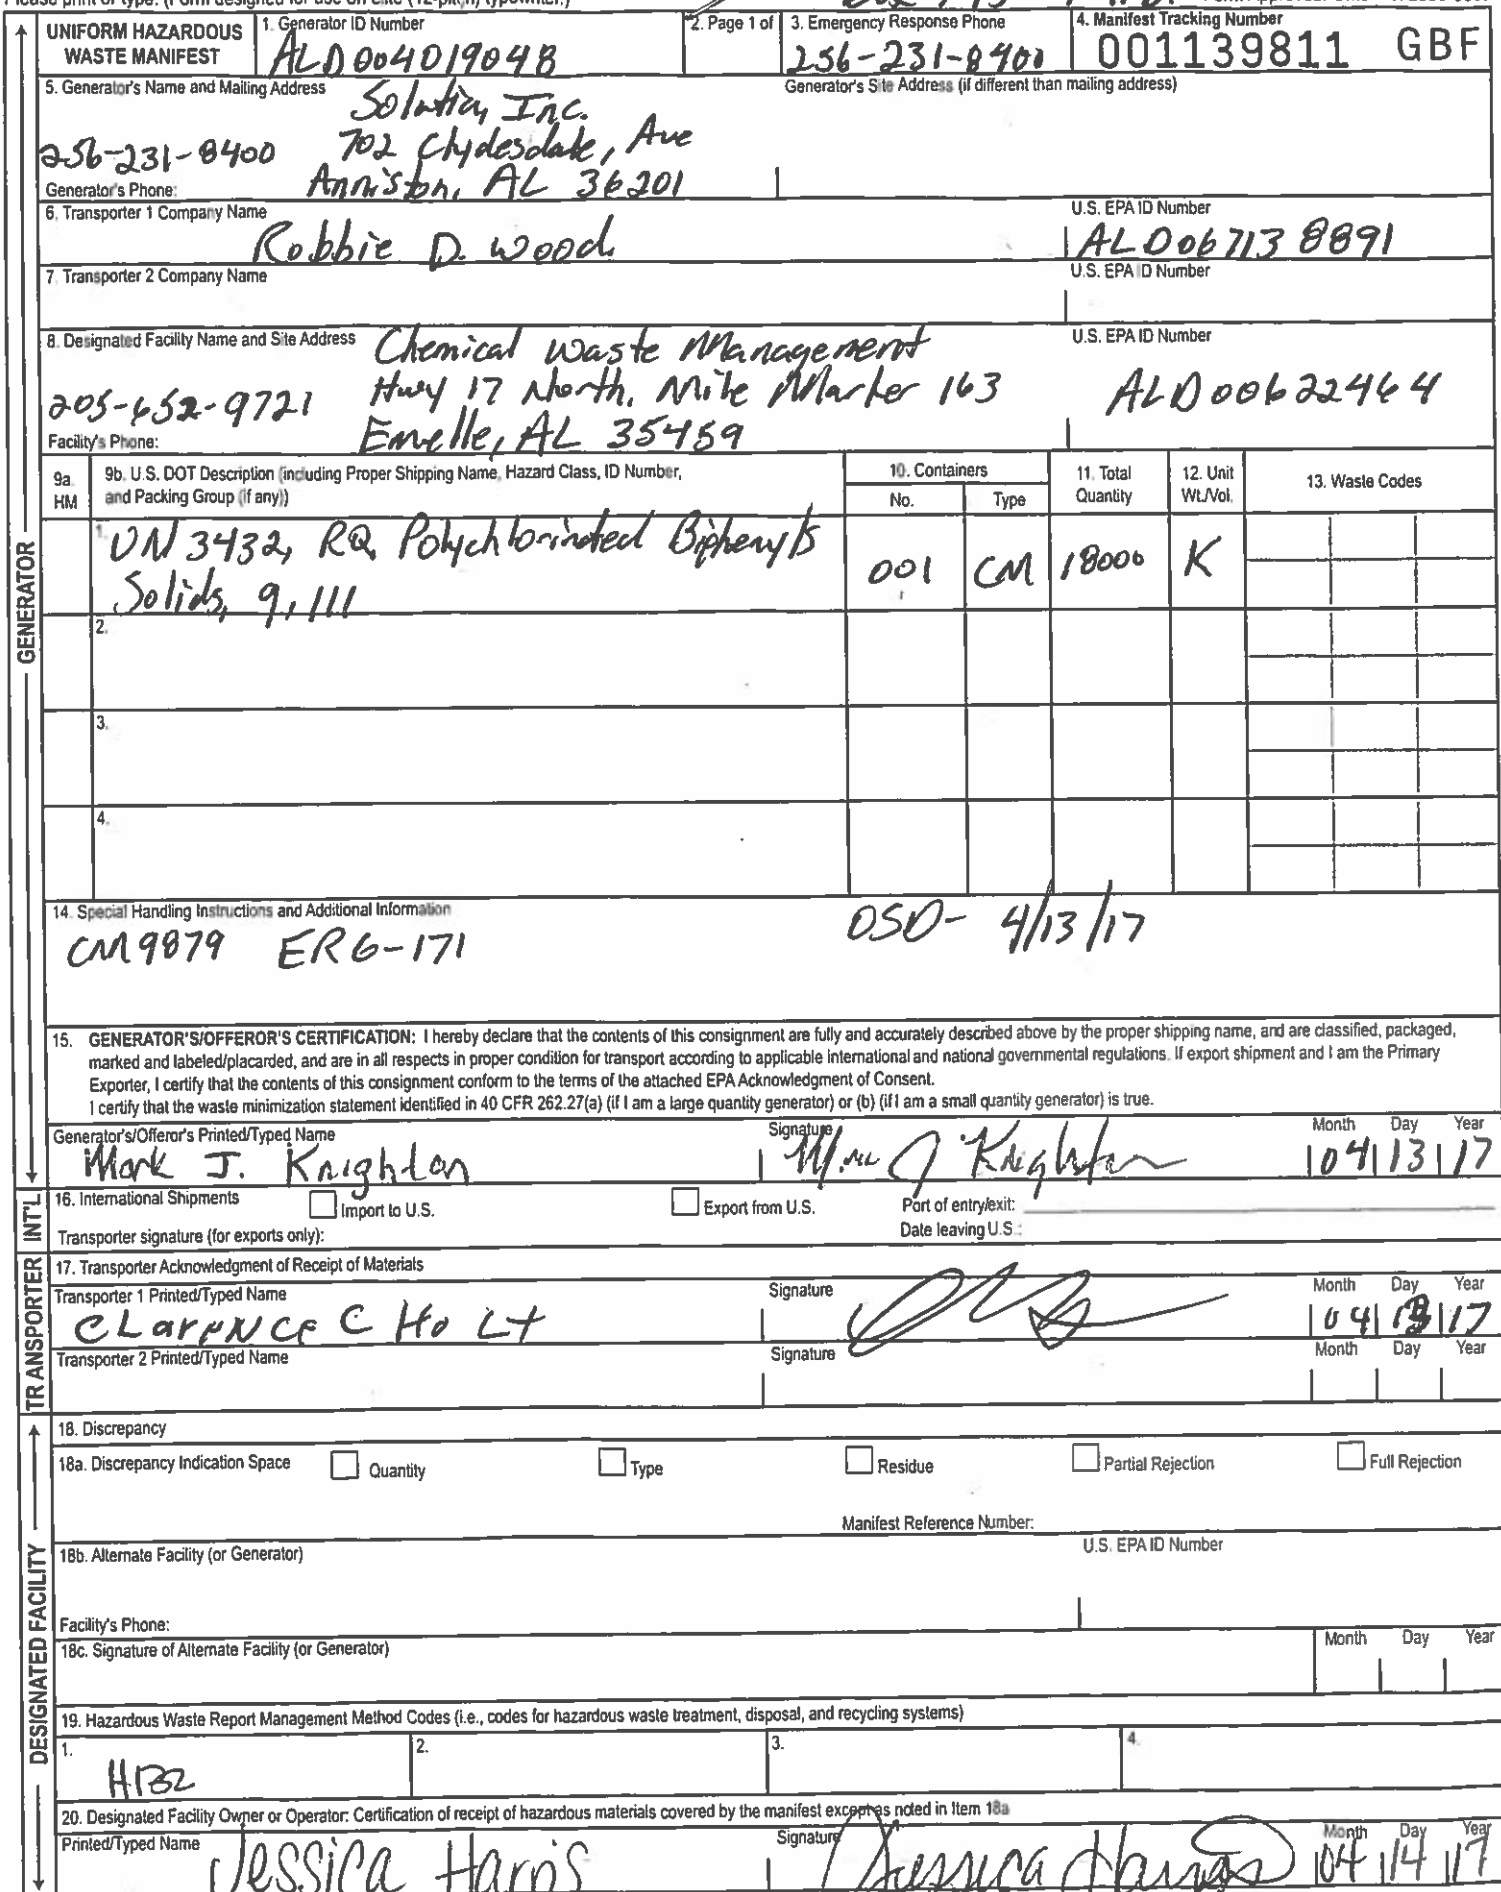 UNIFORM HAZARDOUS WASTE MANIFEST
1. Generator ID Number
ALD004019048
2. Page 1 of
3. Emergency Response Phone
256-231-8400
4. Manifest Tracking Number
001139811 GBF
5. Generator's Name and Mailing Address
Generator's Site Address (if different than mailing address)
Solutia, Inc.
702 Clydesdale, Ave
Anniston, AL 36201
256-231-8400
Generator's Phone:
6. Transporter 1 Company Name
Robbie D. Wood
U.S. EPA ID Number
ALD067138891
7. Transporter 2 Company Name
U.S. EPA ID Number
8. Designated Facility Name and Site Address
Chemical Waste Management
Hwy 17 North, Mile Marker 163
Emelle, AL 35459
205-652-9721
Facility's Phone:
U.S. EPA ID Number
ALD00622464
9a. HM
9b. U.S. DOT Description (including Proper Shipping Name, Hazard Class, ID Number,
and Packing Group (if any))
10. Containers
No.
Type
11. Total Quantity
12. Unit Wt./Vol.
13. Waste Codes
1.
UN 3432, RQ, Polychlorinated Biphenyls
Solids, 9, III
001
CM
18000
K
2.
3.
4.
14. Special Handling Instructions and Additional Information
CM9879 ERG-171
OSD- 4/13/17
15. GENERATOR'S/OFFEROR'S CERTIFICATION: I hereby declare that the contents of this consignment are fully and accurately described above by the proper shipping name, and are classified, packaged,
marked and labeled/placarded, and are in all respects in proper condition for transport according to applicable international and national governmental regulations. If export shipment and I am the Primary
Exporter, I certify that the contents of this consignment conform to the terms of the attached EPA Acknowledgment of Consent.
I certify that the waste minimization statement identified in 40 CFR 262.27(a) (if I am a large quantity generator) or (b) (if I am a small quantity generator) is true.
Generator's/Offeror's Printed/Typed Name
Mark J. Knighton
Signature
J Knighton
Month Day Year
04 13 17
16. International Shipments
Import to U.S.
Export from U.S.
Port of entry/exit:
Transporter signature (for exports only):
Date leaving U.S.:
17. Transporter Acknowledgment of Receipt of Materials
Transporter 1 Printed/Typed Name
CLarENCE C HoLT
Signature
Month Day Year
04 13 17
Transporter 2 Printed/Typed Name
Signature
Month Day Year
18. Discrepancy
18a. Discrepancy Indication Space
Quantity
Type
Residue
Partial Rejection
Full Rejection
Manifest Reference Number:
18b. Alternate Facility (or Generator)
U.S. EPA ID Number
Facility's Phone:
18c. Signature of Alternate Facility (or Generator)
Month Day Year
19. Hazardous Waste Report Management Method Codes (i.e., codes for hazardous waste treatment, disposal, and recycling systems)
1.
H132
2.
3.
4.
20. Designated Facility Owner or Operator: Certification of receipt of hazardous materials covered by the manifest except as noted in Item 18a
Printed/Typed Name
Jessica Harris
Signature
Jessica Harris
Month Day Year
04 14 17
GENERATOR
INT'L
TRANSPORTER
DESIGNATED FACILITY